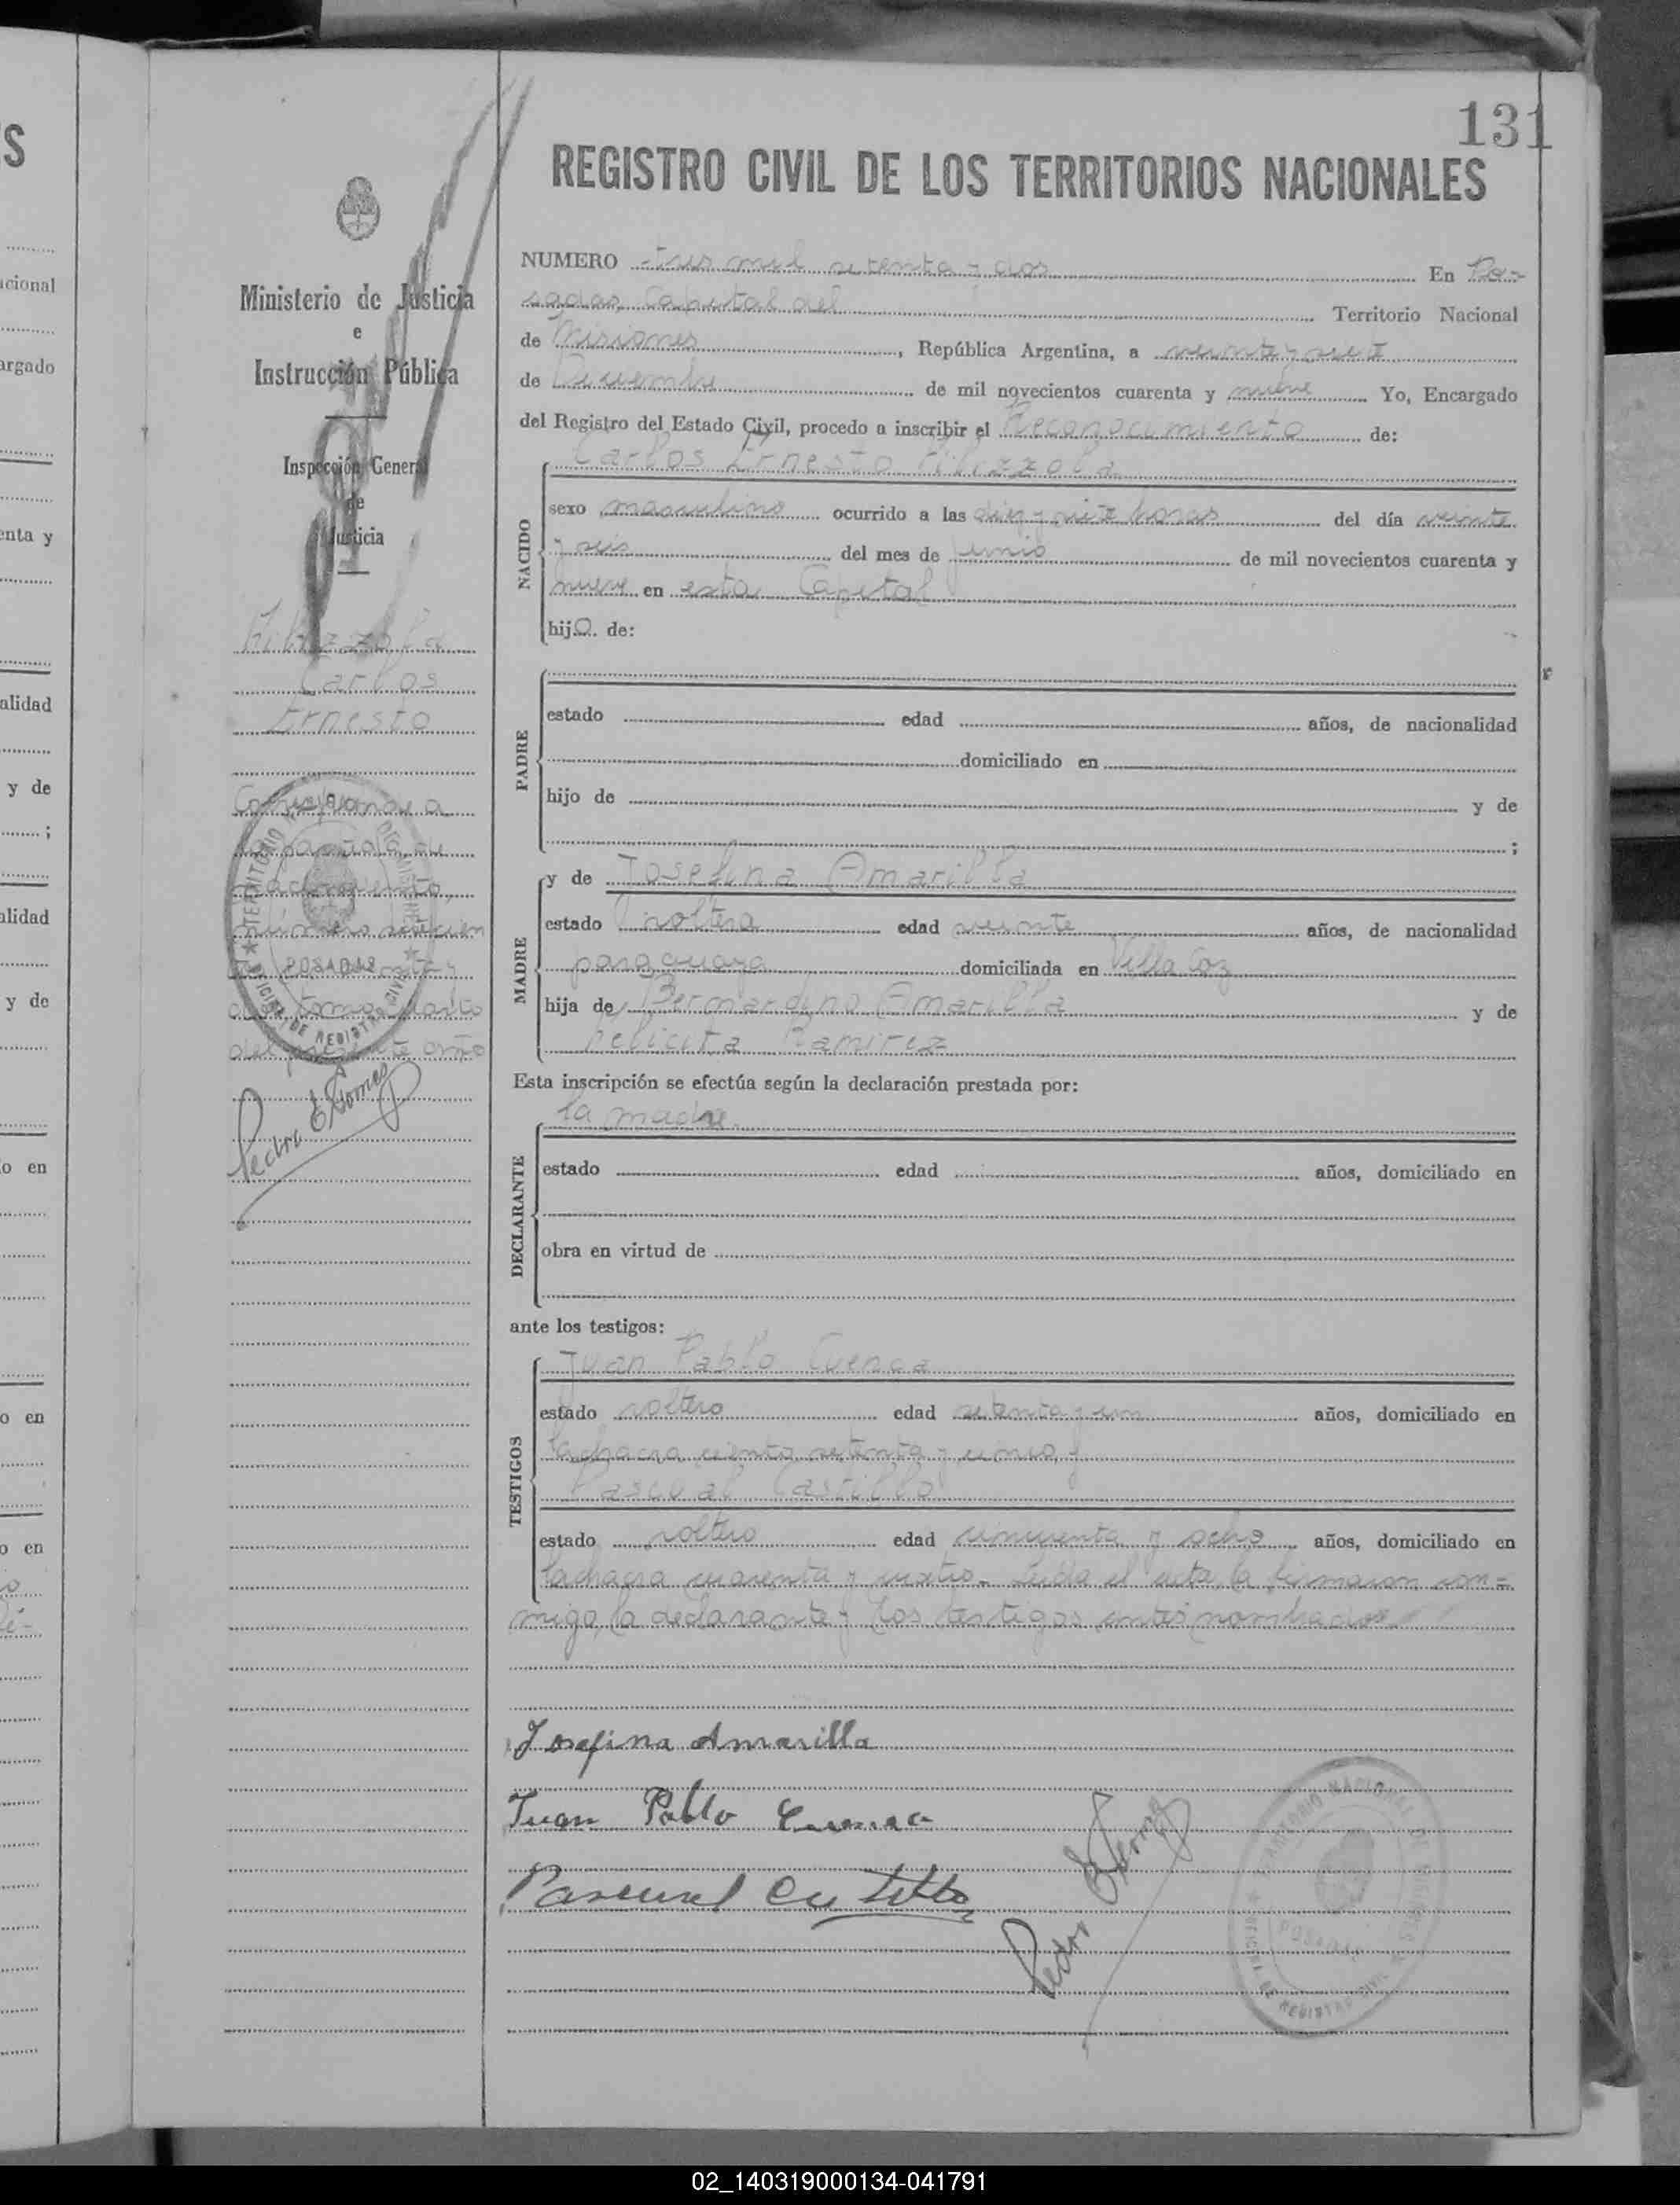 131
REGISTRO CIVIL DE LOS TERRITORIOS NACIONALES
Ministerio de Justicia
e
Instrucción Pública
Inspección General
de
Justicia
Carlos
Ernesto
Corresponde a
número
del presente año
Pedro E Gomes
NUMERO tres mil setenta y dos En Po-
sadas, Capital del Territorio Nacional
de Misiones, República Argentina, a veinte y siete
de Diciembre de mil novecientos cuarenta y nueve Yo, Encargado
del Registro del Estado Civil, procedo a inscribir el Reconocimiento de:
Carlos Ernesto
NACIDO
sexo masculino ocurrido a las diez y siete horas del día veinte
y seis del mes de junio de mil novecientos cuarenta y
nueve en esta Capital
hijo de:
PADRE
estado edad años, de nacionalidad
domiciliado en
hijo de y de
;
MADRE
y de Josefina Amarilla
estado soltera edad veinte años, de nacionalidad
paraguaya domiciliada en Villa Coz
hija de Bernardino Amarilla y de
Felicita Ramirez
Esta inscripción se efectúa según la declaración prestada por:
la madre
DECLARANTE
estado edad años, domiciliado en
obra en virtud de
ante los testigos:
TESTIGOS
Juan Pablo Cuenca
estado soltero edad setenta y un años, domiciliado en
la chacra ciento setenta y una, y
Pascual Castillo
estado soltero edad cincuenta y ocho años, domiciliado en
la chacra cuarenta y cuatro. Leída el acta, la firmaron con-
migo, la declarante y los testigos antes nombrados
Josefina Amarilla
Juan Pablo Cuenca
Pascual Castillo
Pedro E Gomes
02_140319000134-041791